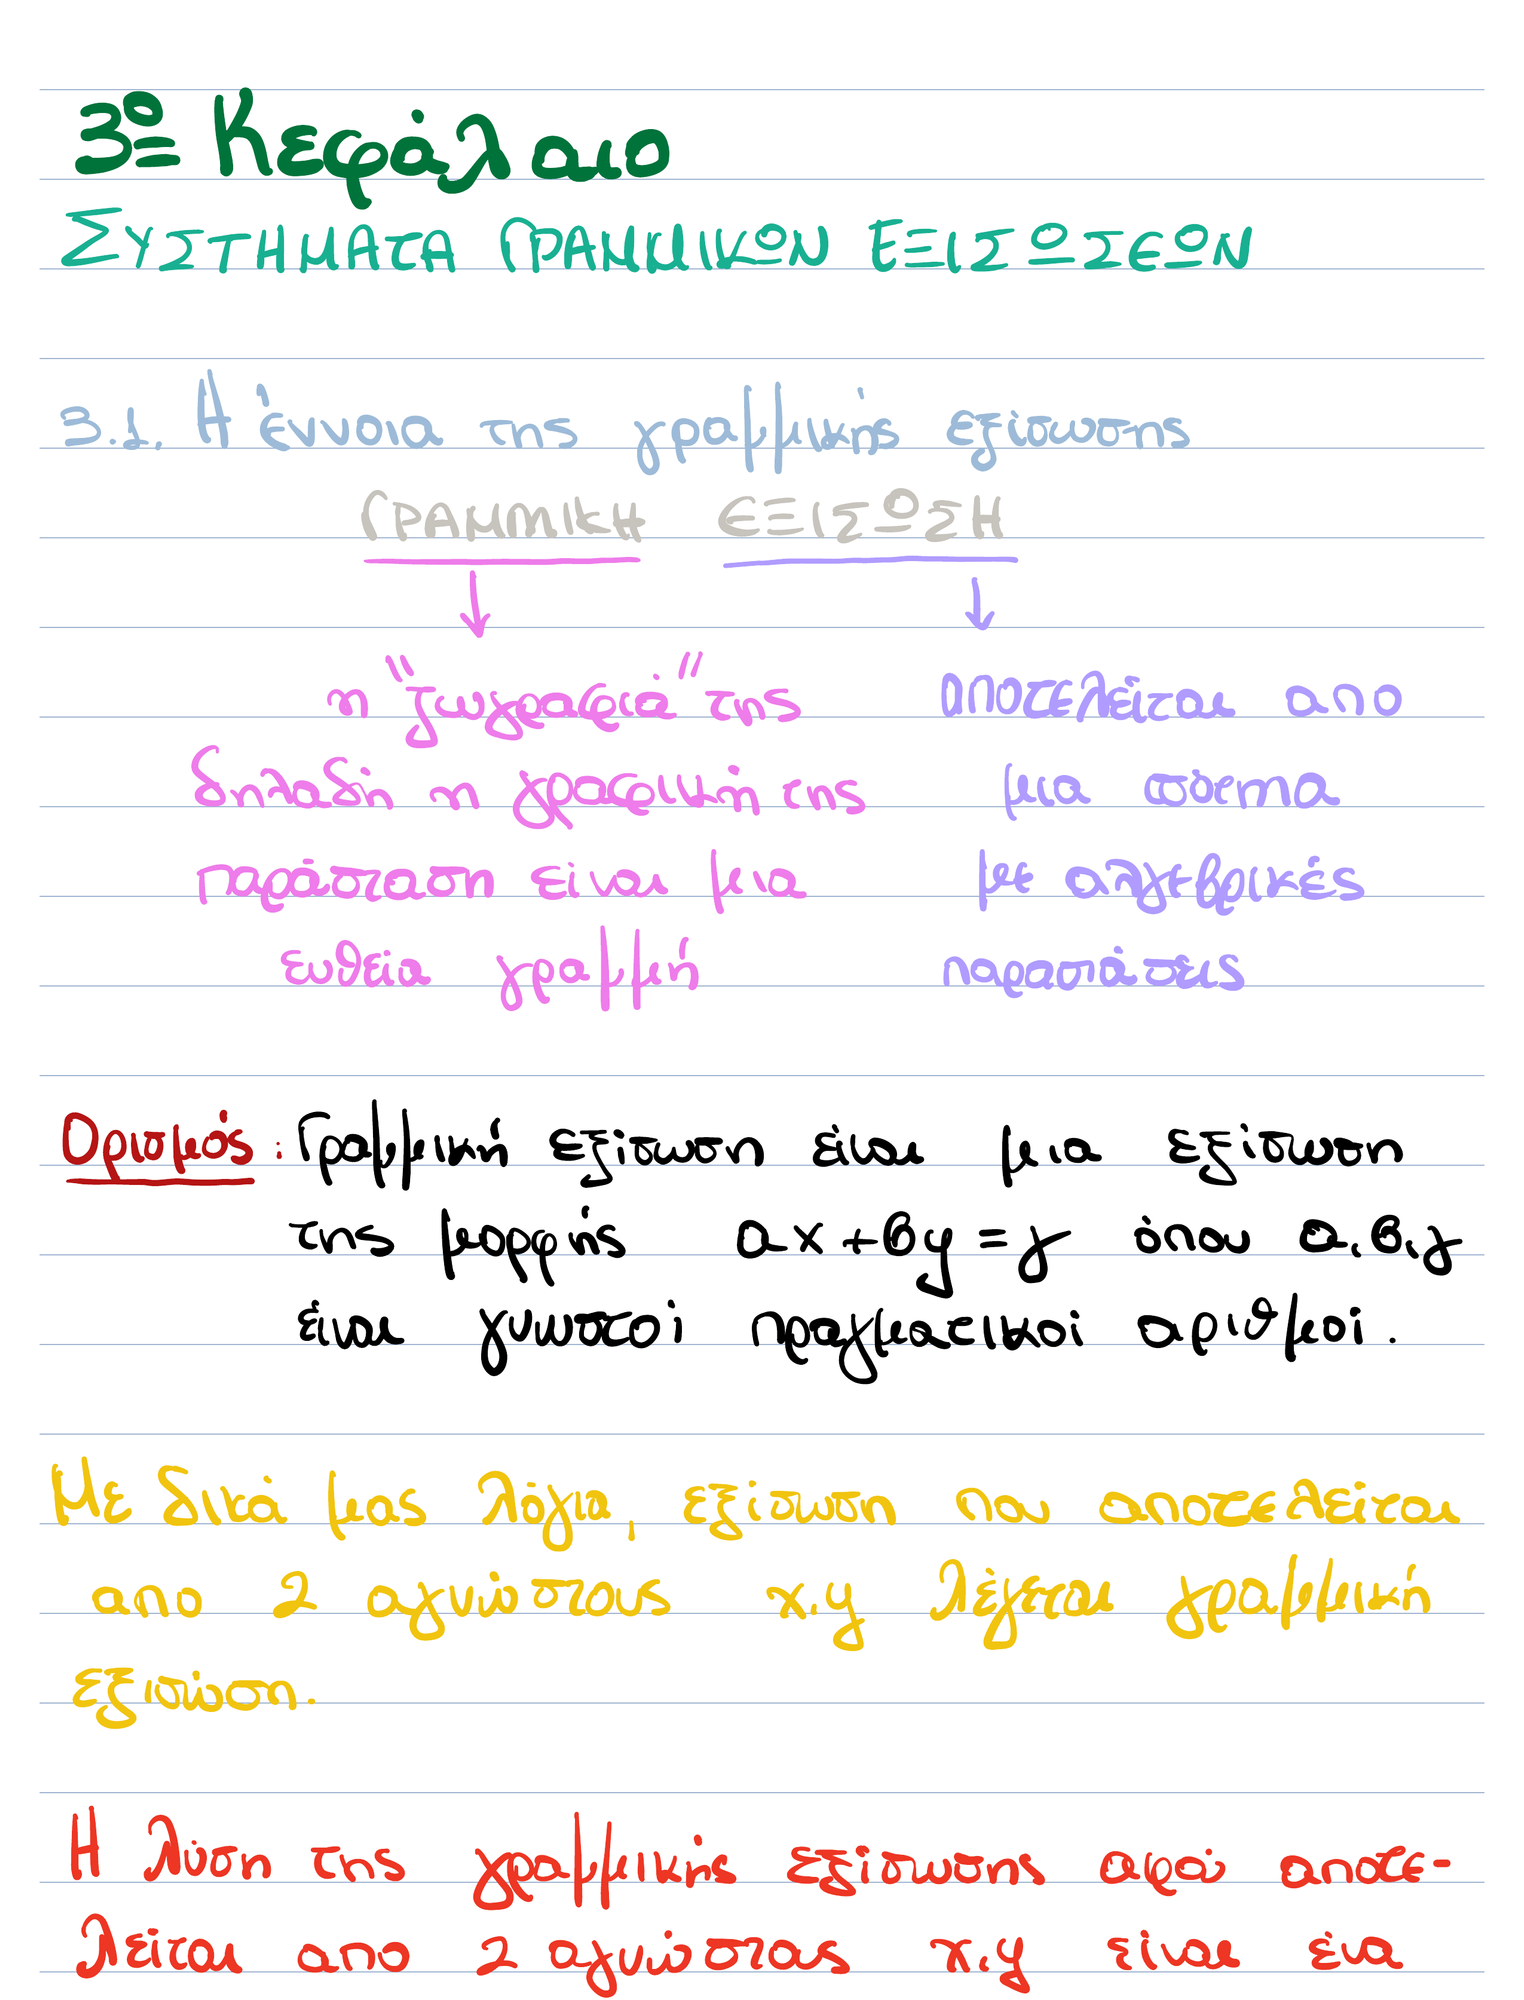 3ο Κεφάλαιο
ΣΥΣΤΗΜΑΤΑ ΓΡΑΜΜΙΚΩΝ ΕΞΙΣΩΣΕΩΝ
3.1. Η έννοια της γραμμικής εξίσωσης
ΓΡΑΜΜΙΚΗ ΕΞΙΣΩΣΗ
η "ζωγραφιά" της
δηλαδή η γραφική της
παράσταση είναι μια
ευθεία γραμμή
αποτελείται απο
μια ισότητα
με αλγεβρικές
παραστάσεις
Ορισμός: Γραμμική εξίσωση είναι μια εξίσωση
της μορφής αx+βy=γ όπου α,β,γ
είναι γνωστοί πραγματικοί αριθμοί.
Με δικά μας λόγια, εξίσωση που αποτελείται
απο 2 αγνώστους x,y λέγεται γραμμική
εξισώση.
Η λύση της γραμμικής εξίσωσης αφού αποτε-
λείται απο 2 αγνώστους x,y είναι ένα